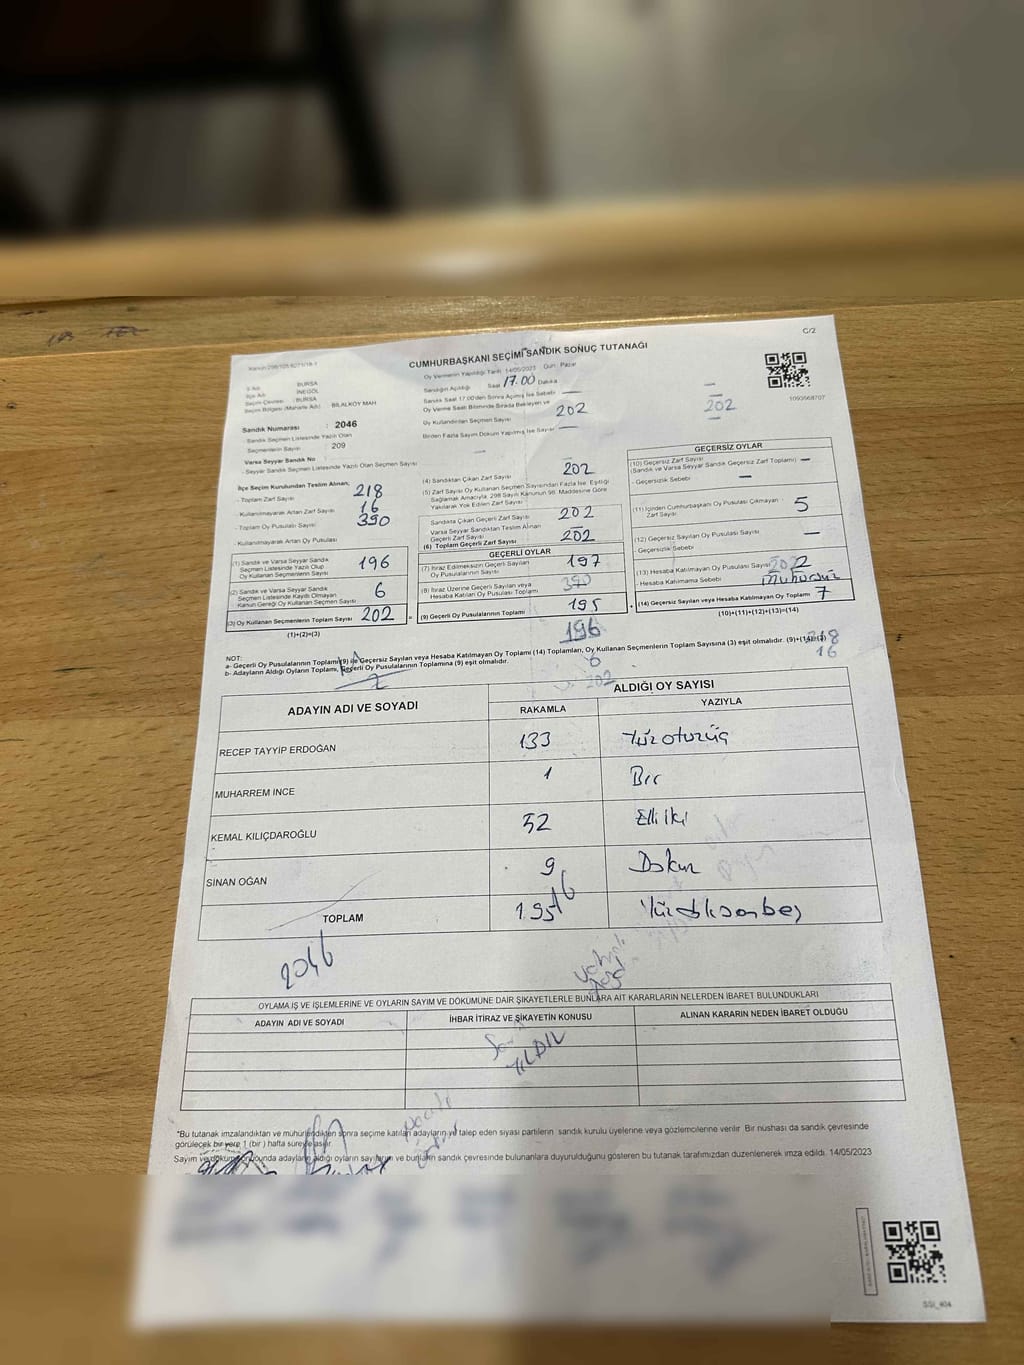 C/2
CUMHURBAŞKANI SEÇİMİ SANDIK SONUÇ TUTANAĞI
Oy Vermenin Yapıldığı Tarih 14/05/2023 Gün : Pazar
Sandığın Açıldığı Saat 17.00 Dakika
Sandık Saat 17.00'den Sonra Açılmış İse Sebebi —
Oy Verme Saati Bitiminde Sırada Bekleyen ve
Oy Kullandırılan Seçmen Sayısı 202
Birden Fazla Sayım Döküm Yapılmış İse Sayısı —
202
1093568707
İl Adı : BURSA
İlçe Adı : İNEGÖL
Seçim Çevresi : BURSA
Seçim Bölgesi (Mahalle Adı) : BİLALKÖY MAH
Sandık Numarası : 2046
- Sandık Seçmen Listesinde Yazılı Olan
Seçmenlerin Sayısı : 209
Varsa Seyyar Sandık No :
- Seyyar Sandık Seçmen Listesinde Yazılı Olan Seçmen Sayısı : -
İlçe Seçim Kurulundan Teslim Alınan;
- Toplam Zarf Sayısı 218
- Kullanılmayarak Artan Zarf Sayısı 16
- Toplam Oy Pusulası Sayısı 390
- Kullanılmayarak Artan Oy Pusulası
(1) Sandık ve Varsa Seyyar Sandık
Seçmen Listesinde Yazılı Olup
Oy Kullanan Seçmenlerin Sayısı 196
(2) Sandık ve Varsa Seyyar Sandık
Seçmen Listesinde Kayıtlı Olmayan
Kanun Gereği Oy Kullanan Seçmen Sayısı 6
(3) Oy Kullanan Seçmenlerin Toplam Sayısı 202
(1)+(2)=(3)
(4) Sandıktan Çıkan Zarf Sayısı 202
(5) Zarf Sayısı Oy Kullanan Seçmen Sayısından Fazla İse, Eşitliği
Sağlamak Amacıyla, 298 Sayılı Kanunun 98. Maddesine Göre
Yakılarak Yok Edilen Zarf Sayısı
Sandıkta Çıkan Geçerli Zarf Sayısı 202
Varsa Seyyar Sandıktan Teslim Alınan
Geçerli Zarf Sayısı
(6) Toplam Geçerli Zarf Sayısı 202
GEÇERLİ OYLAR
(7) İtiraz Edilmeksizin Geçerli Sayılan
Oy Pusulalarının Sayısı 197
(8) İtiraz Üzerine Geçerli Sayılan veya
Hesaba Katılan Oy Pusulası Toplamı 390
= (9) Geçerli Oy Pusulalarının Toplamı 195
196
6
202
GEÇERSİZ OYLAR
(10) Geçersiz Zarf Sayısı —
(Sandık ve Varsa Seyyar Sandık Geçersiz Zarf Toplamı)
- Geçersizlik Sebebi —
(11) İçinden Cumhurbaşkanı Oy Pusulası Çıkmayan
Zarf Sayısı 5
(12) Geçersiz Sayılan Oy Pusulası Sayısı —
- Geçersizlik Sebebi
(13) Hesaba Katılmayan Oy Pusulası Sayısı 2
- Hesaba Katılmama Sebebi Mühürsüz
+ (14) Geçersiz Sayılan veya Hesaba Katılmayan Oy Toplamı 7
(10)+(11)+(12)+(13)=(14)
218
16
NOT:
a- Geçerli Oy Pusulalarının Toplamı (9) ile Geçersiz Sayılan veya Hesaba Katılmayan Oy Toplamı (14) Toplamları, Oy Kullanan Seçmenlerin Toplam Sayısına (3) eşit olmalıdır. (9)+(14)=(3)
b- Adayların Aldığı Oyların Toplamı, Geçerli Oy Pusulalarının Toplamına (9) eşit olmalıdır.
ADAYIN ADI VE SOYADI
ALDIĞI OY SAYISI
RAKAMLA
YAZIYLA
RECEP TAYYİP ERDOĞAN 133 Yüzotuzüç
MUHARREM İNCE 1 Bir
KEMAL KILIÇDAROĞLU 52 Elliiki
SİNAN OĞAN 9 Dokuz
TOPLAM 195 Yüzdoksanbeş
2046
YILDIZ
OYLAMA İŞ VE İŞLEMLERİNE VE OYLARIN SAYIM VE DÖKÜMÜNE DAİR ŞİKAYETLERLE BUNLARA AİT KARARLARIN NELERDEN İBARET BULUNDUKLARI
ADAYIN ADI VE SOYADI
İHBAR İTİRAZ VE ŞİKAYETİN KONUSU
ALINAN KARARIN NEDEN İBARET OLDUĞU
"Bu tutanak imzalandıktan ve mühürlendikten sonra seçime katılan adayların ya talep eden siyasi partilerin sandık kurulu üyelerine veya gözlemcilerine verilir Bir nüshası da sandık çevresinde
görülecek bir yere 1 (bir ) hafta süreyle asılır.
Sayım ve döküm sonunda adayların aldığı oyların sayılarını ve bunların sandık çevresinde bulunanlara duyurulduğunu gösteren bu tutanak tarafımızdan düzenlenerek imza edildi. 14/05/2023